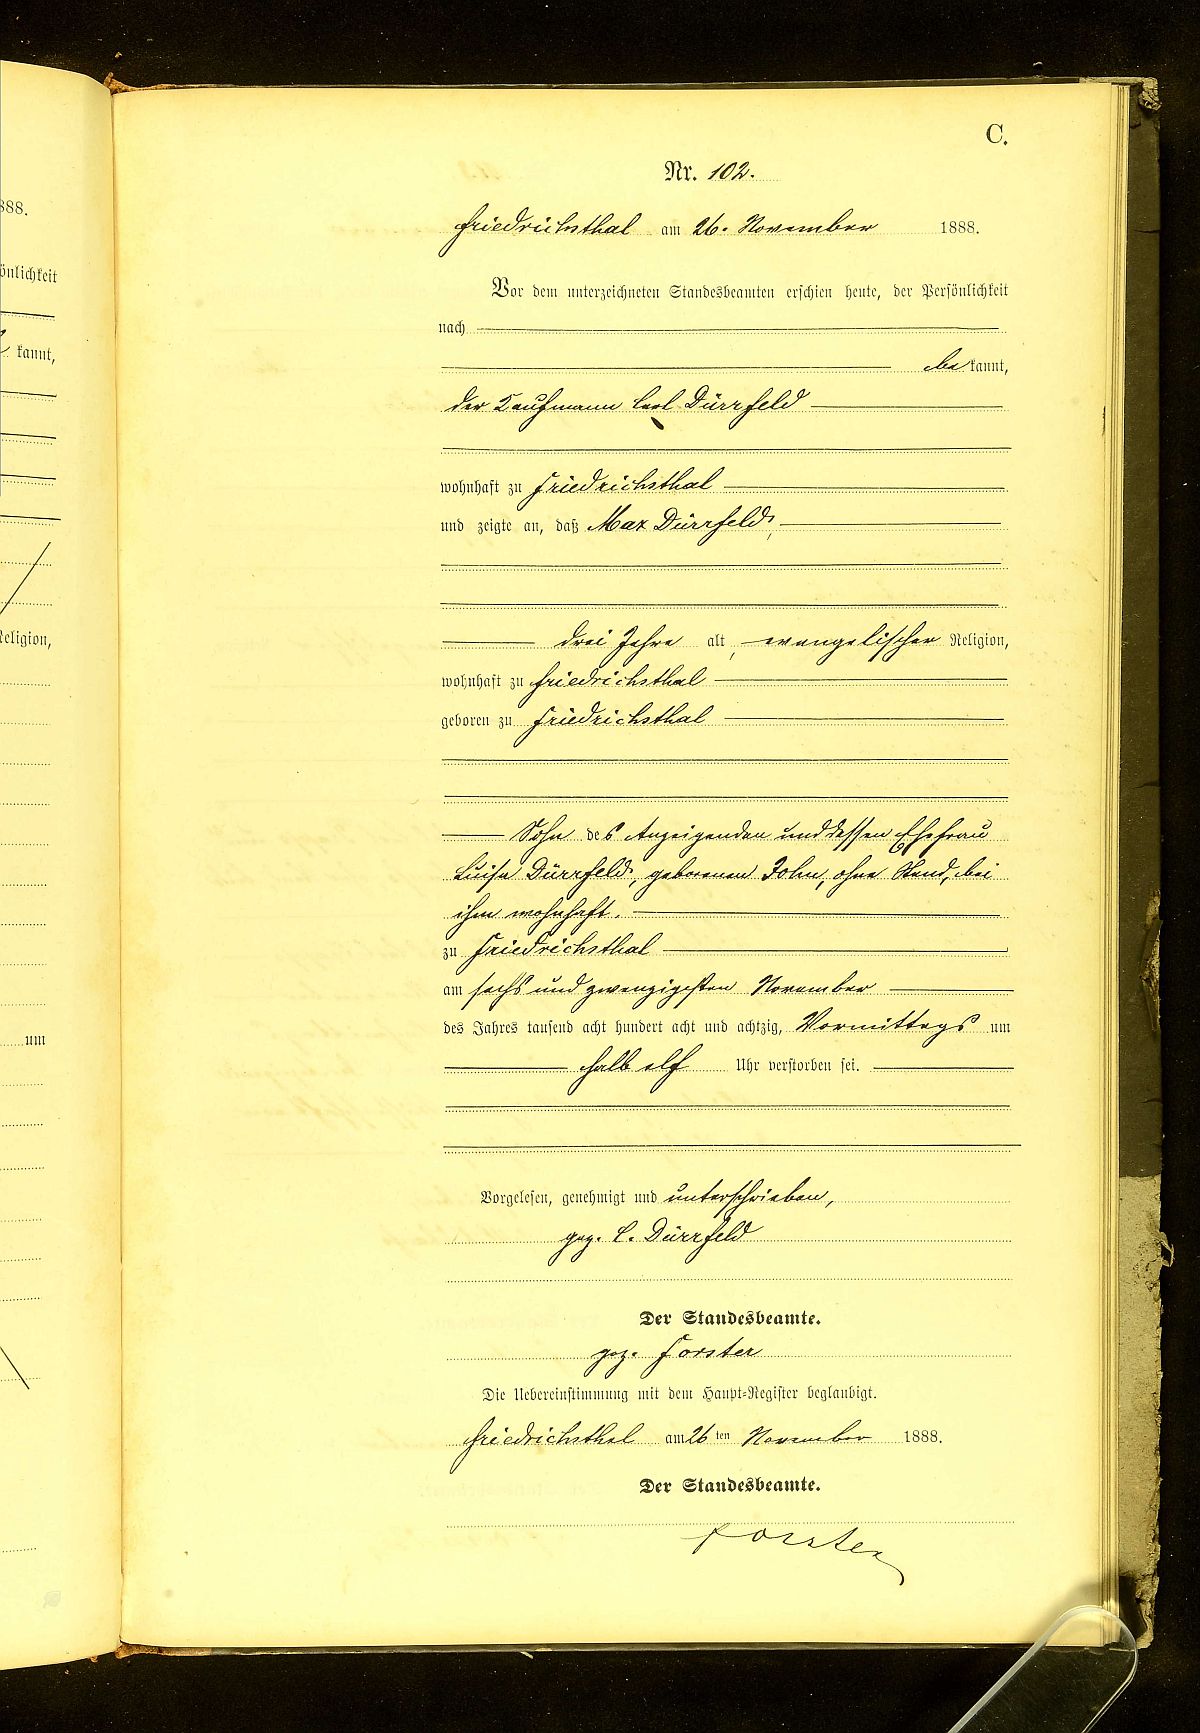 C.
Nr. 102.
Friedrichsthal am 26. November 1888.
Vor dem unterzeichneten Standesbeamten erschien heute, der Persönlichkeit
nach
be kannt,
der Kaufmann Carl Dürrfeld
wohnhaft zu Friedrichsthal
und zeigte an, daß Max Dürrfeld,
drei Jahre alt, evangelischer Religion,
wohnhaft zu Friedrichsthal
geboren zu Friedrichsthal
Sohn des Anzeigenden und dessen Ehefrau
Luise Dürrfeld, geborenen John, ohne Stand, bei
ihm wohnhaft.
zu Friedrichsthal
am sechs und zwanzigsten November
des Jahres tausend acht hundert acht und achtzig, Vormittags um
halb elf Uhr verstorben sei.
Vorgelesen, genehmigt und unterschrieben,
gez. C. Dürrfeld
Der Standesbeamte.
gez. Forster
Die Uebereinstimmung mit dem Haupt-Register beglaubigt.
Friedrichsthal am 26 ten November 1888.
Der Standesbeamte.
Forster
888.
önlichkeit
kannt,
Religion,
um